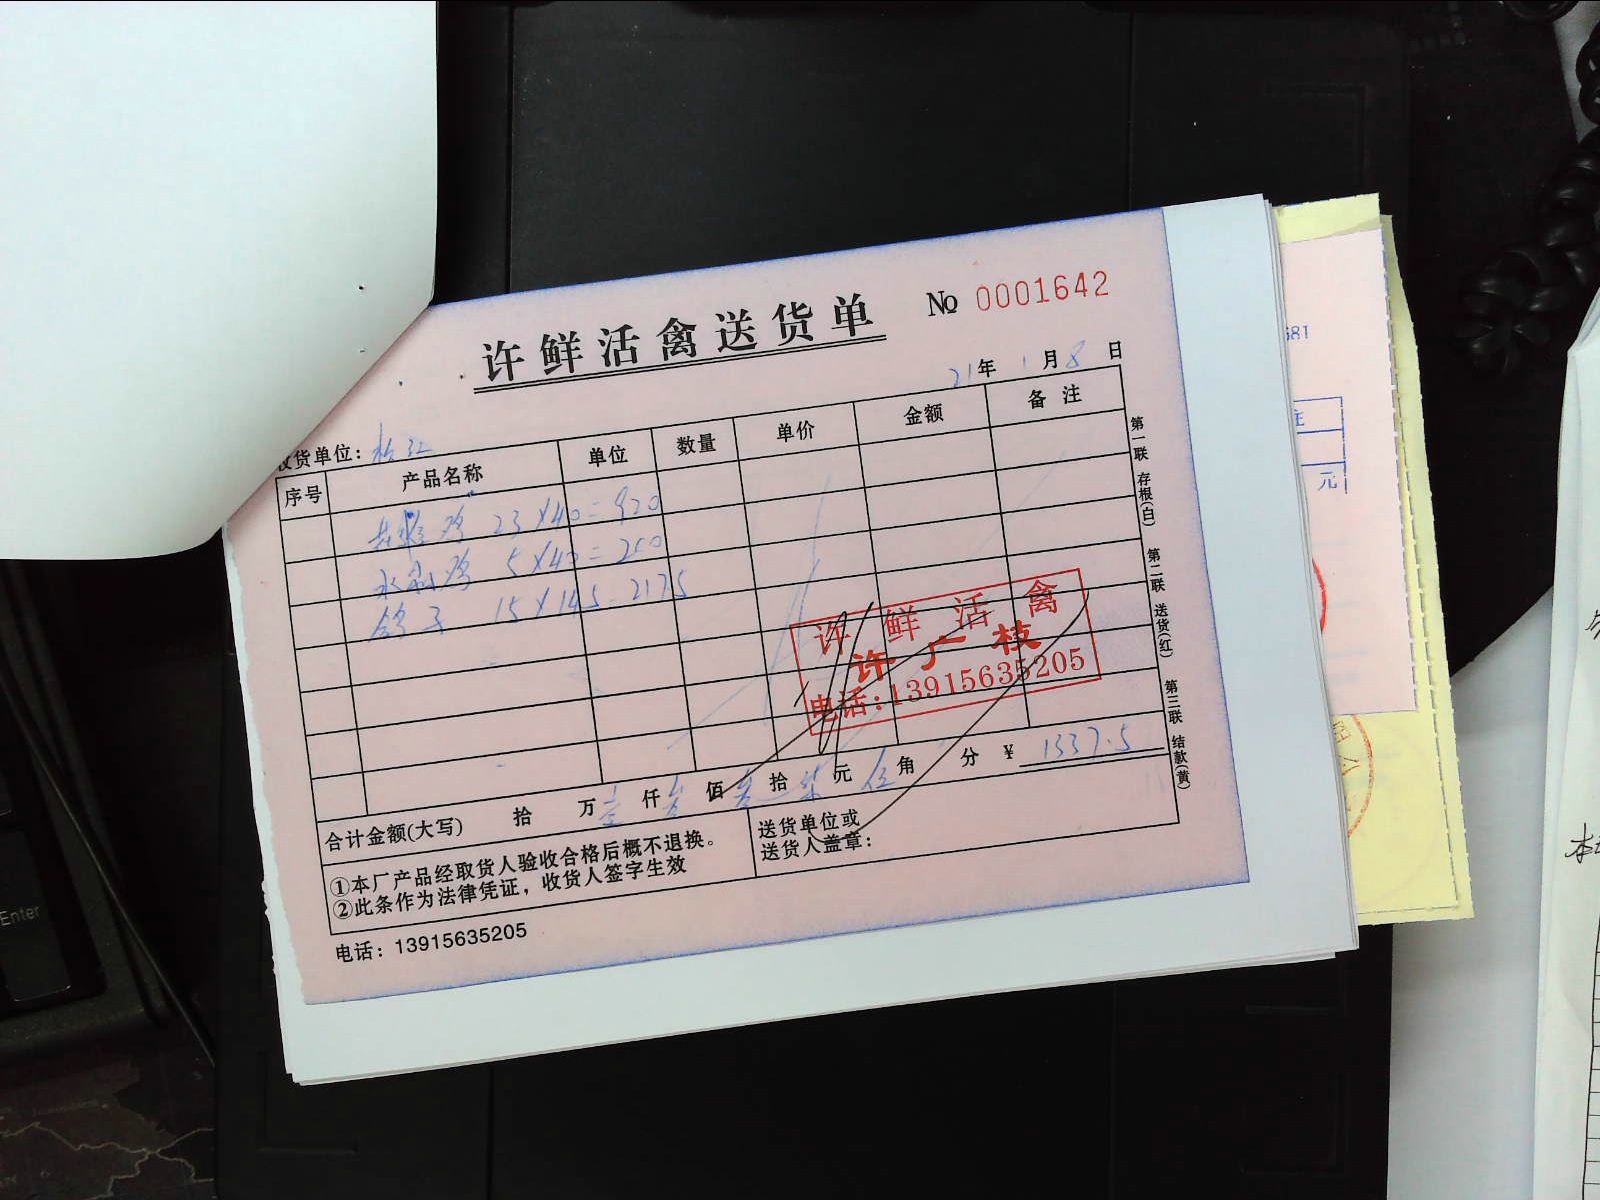 许鲜活禽送货单
No 0001642
21年 1月8日
收货单位：
序号 产品名称 单位 数量 单价 金额 备注
鸡 23×40=920
鸡 5×40=200
鸽子 15×14.5=217.5
许鲜活禽
许广枝
电话:13915635205
合计金额(大写) 拾 万壹仟叁佰叁拾柒元伍角 分 ¥1337.5
①本厂产品经取货人验收合格后概不退换。
②此条作为法律凭证，收货人签字生效
送货单位或
送货人盖章：
电话：13915635205
第一联 存根(白) 第二联 送货(红) 第三联 结款(黄)
681
元
Enter